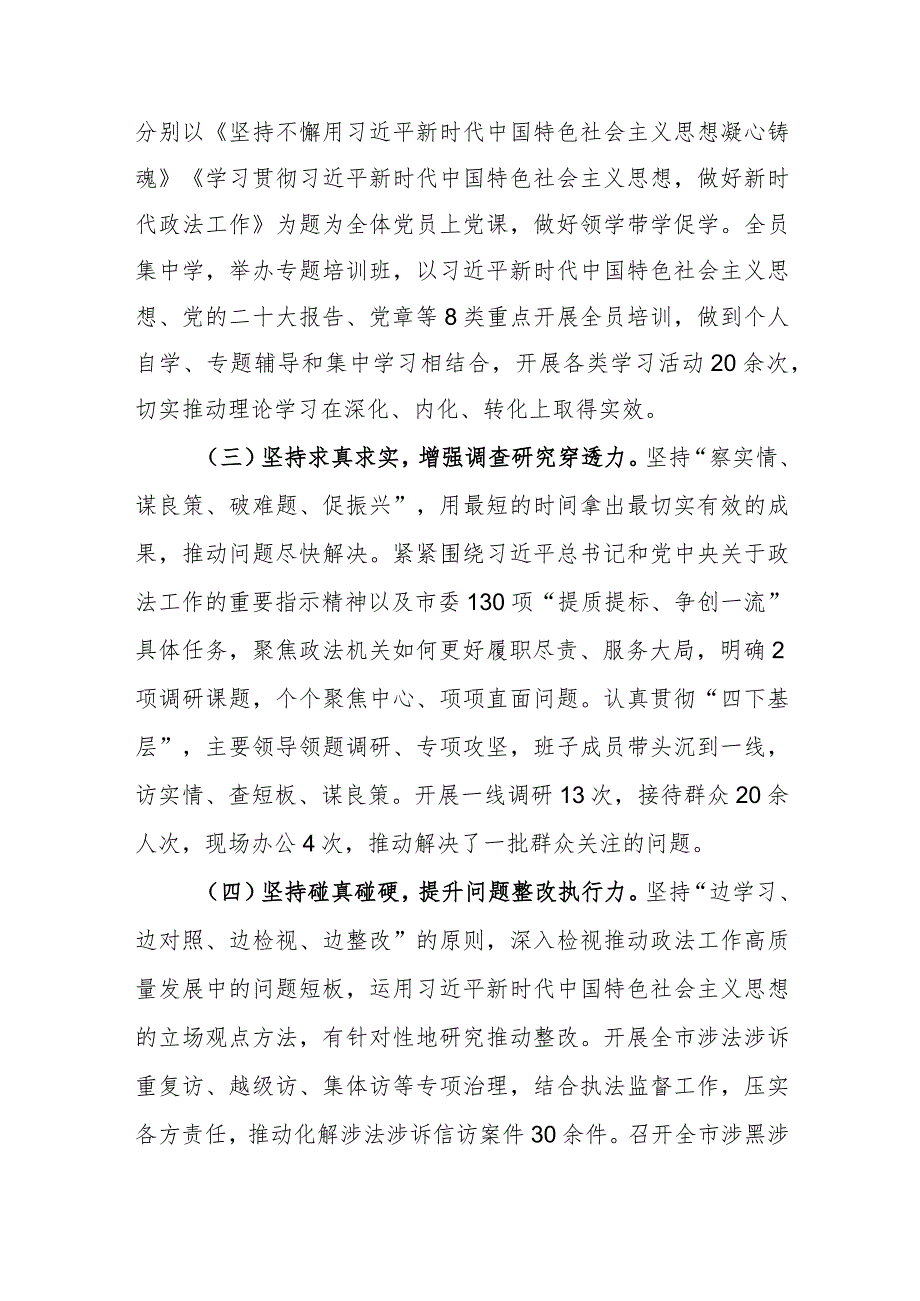 分别以《坚持不懈用习近平新时代中国特色社会主义思想凝心铸
魂》《学习贯彻习近平新时代中国特色社会主义思想，做好新时
代政法工作》为题为全体党员上党课，做好领学带学促学。全员
集中学，举办专题培训班，以习近平新时代中国特色社会主义思
想、党的二十大报告、党章等8类重点开展全员培训，做到个人
自学、专题辅导和集中学习相结合，开展各类学习活动20余次，
切实推动理论学习在深化、内化、转化上取得实效。
（三）坚持求真求实，增强调查研究穿透力。坚持“察实情、
谋良策、破难题、促振兴”，用最短的时间拿出最切实有效的成
果，推动问题尽快解决。紧紧围绕习近平总书记和党中央关于政
法工作的重要指示精神以及市委130项“提质提标、争创一流”
具体任务，聚焦政法机关如何更好履职尽责、服务大局，明确2
项调研课题，个个聚焦中心、项项直面问题。认真贯彻“四下基
层”，主要领导领题调研、专项攻坚，班子成员带头沉到一线，
访实情、查短板、谋良策。开展一线调研13次，接待群众20余
人次，现场办公4次，推动解决了一批群众关注的问题。
（四）坚持碰真碰硬，提升问题整改执行力。坚持“边学习、
边对照、边检视、边整改”的原则，深入检视推动政法工作高质
量发展中的问题短板，运用习近平新时代中国特色社会主义思想
的立场观点方法，有针对性地研究推动整改。开展全市涉法涉诉
重复访、越级访、集体访等专项治理，结合执法监督工作，压实
各方责任，推动化解涉法涉诉信访案件30余件。召开全市涉黑涉